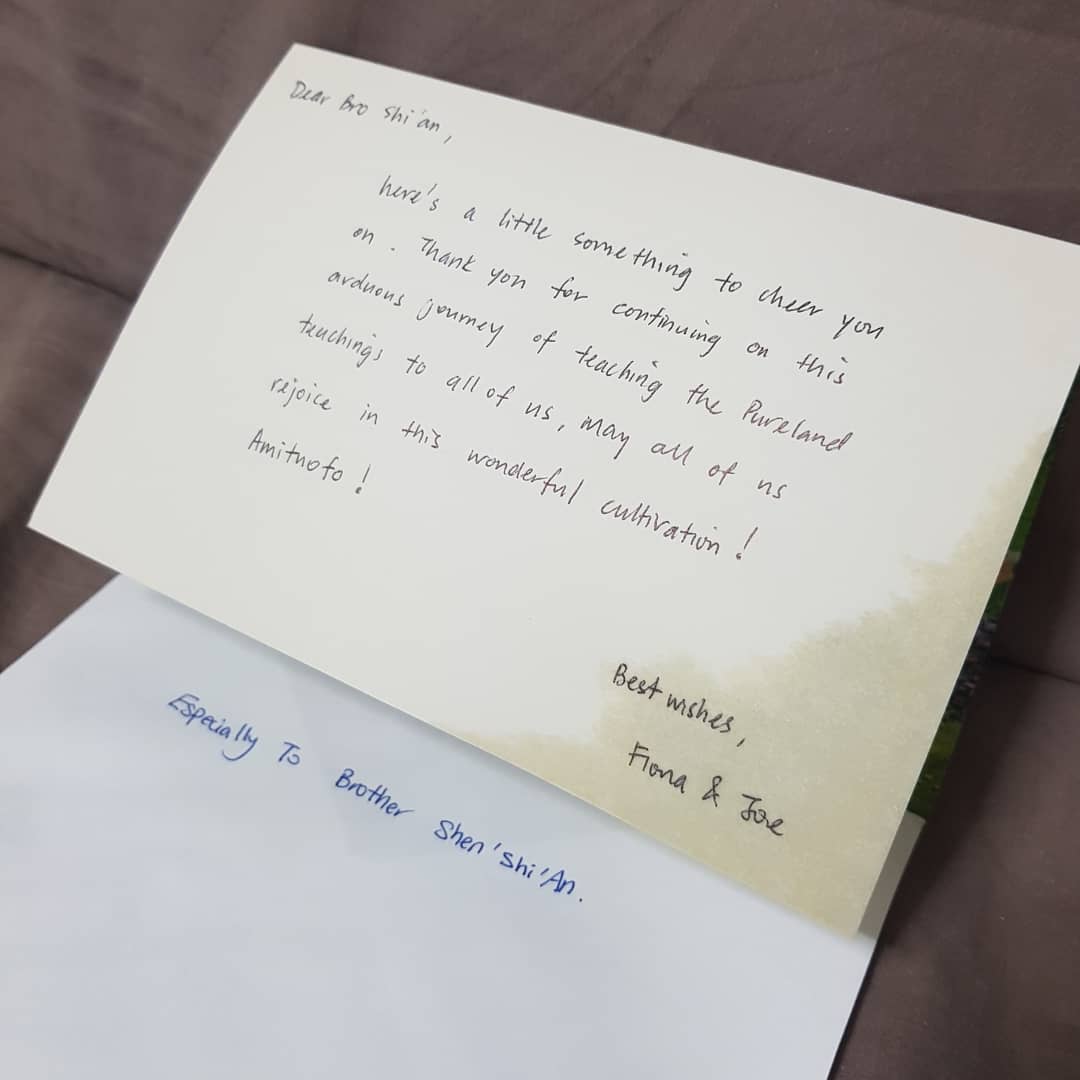 Dear Bro Shi'an,
here's a little something to cheer you
on. Thank you for continuing on this
arduous journey of teaching the Pureland
teachings to all of us, may all of us
rejoice in this wonderful cultivation!
Amituofo!
Best wishes,
Fiona & Joe
Especially To Brother Shen'Shi'An.